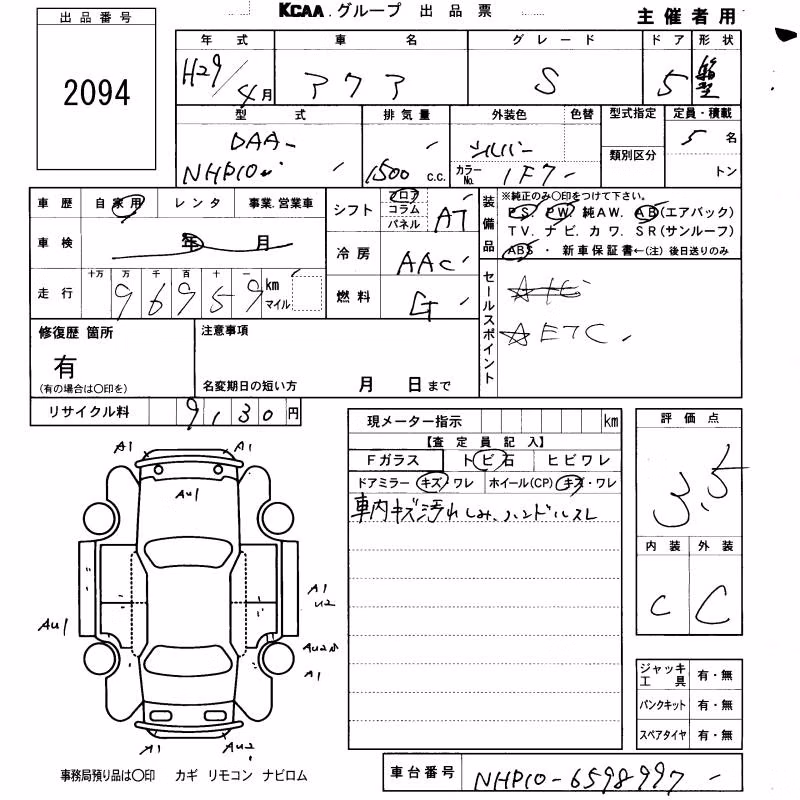 KCAA.グループ 出品票
主催者用
出品番号
2094
年式 車名 グレード ドア 形状
H29/4月 アクア S 5 箱型
型式 排気量 外装色 色替 型式指定 定員・積載
DAA-
NHP10 1500 c.c. シルバー カラーNo. 1F7 類別区分 5名
トン
車歴 自家用 レンタ 事業.営業車
車検 年 月
走行 十万 万 千 百 十 一
96959 km マイル
シフト フロア コラム パネル AT
冷房 AAC
燃料 G
装備品
※純正のみ〇印をつけて下さい。
PS, PW, 純AW. AB(エアバック)
TV. ナビ. カワ. SR(サンルーフ)
ABS ・ 新車保証書←(注) 後日送りのみ
セールスポイント
☆ETC
修復歴 箇所
有
(有の場合は〇印を)
注意事項
名変期日の短い方 月 日まで
リサイクル料 9,130円
現メーター指示 km
【査定員記入】
Fガラス トビ石 ヒビワレ
ドアミラー キズ・ワレ ホイール(CP) キズ・ワレ
車内キズ汚れしみ、ハンドルスレ
評価点
3.5
内装 外装
C C
A1 A1
AU1
A1
U2
AU1
AU2
A1
A1 AU2
ジャッキ工具 有・無
パンクキット 有・無
スペアタイヤ 有・無
事務局預り品は〇印 カギ リモコン ナビロム
車台番号 NHP10-6598997